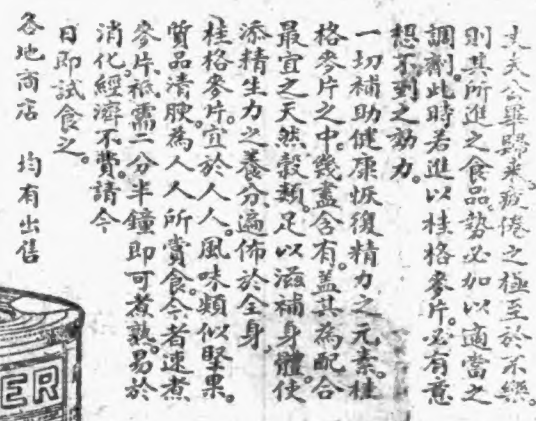 丈夫公畢歸來疲倦之極至於不樂。
則其所進之食品。勢必加以適當之
調劑。此時若進以桂格麥片。必有意
想不到之効力。
一切補助健康恢復精力之元素。桂
格麥片之中。幾盡含有。蓋其為配合
最宜之天然穀類。足以滋補身體。使
添精生力之養分。遍佈於全身。
桂格麥片。宜於人人。風味類似堅果。
質品清腴。為人人所賞食。今者速煮
麥片。祇需二分半鐘即可煮熟。易於
消化。經濟不費。請今
日即試食之。
各地商店 均有出售
ER